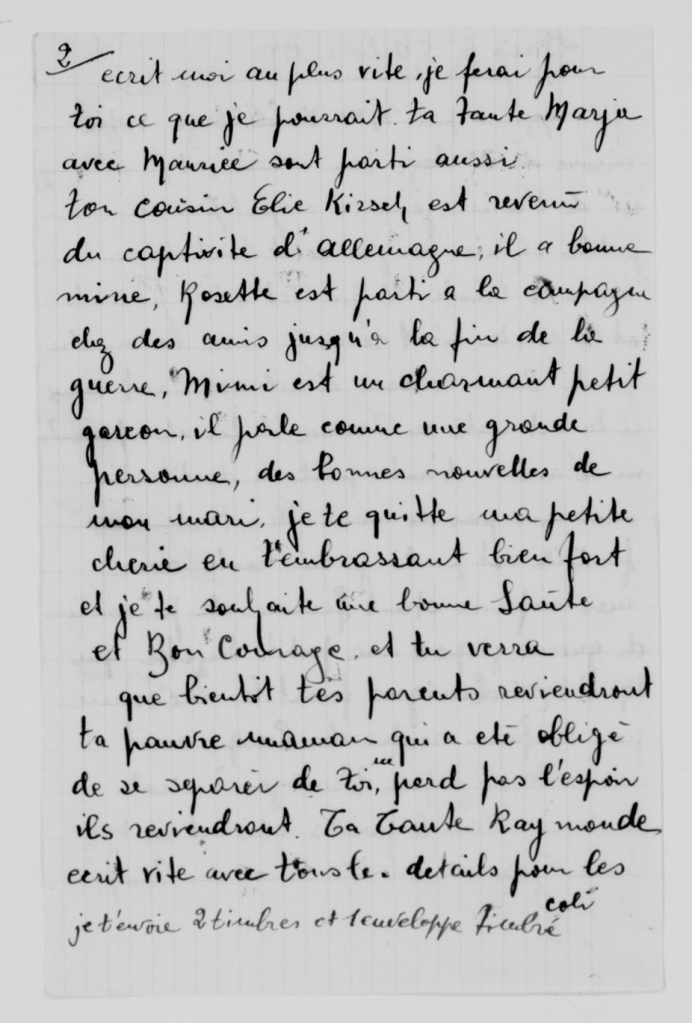 2
ecrit moi au plus vite, je ferai pour
toi ce que je pourrait. ta tante Marja
avec Maurice sont parti aussi.
ton cousin Elie Kirsch est revenu
du captivite d'allemagne, il a bonne
mine, Rosette est parti a la campagne
chez des amis jusqu'a la fin de la
guerre, Mimi est un charmant petit
garcon, il parle comme une grande
personne, des bonnes nouvelles de
mon mari, je te quitte ma petite
cherie en t'embrassant bien fort
et je te souhaite une bonne Santé
et Bon Courage. et tu verra
que bientôt tes parents reviendront
ta pauvre maman qui a eté obligé
de se separer de toi, ne perd pas l'espoir
ils reviendront. Ta Tante Raymonde
ecrit vite avec tous le. details pour les
coli
je t'envoie 2 timbres et 1 enveloppe timbré